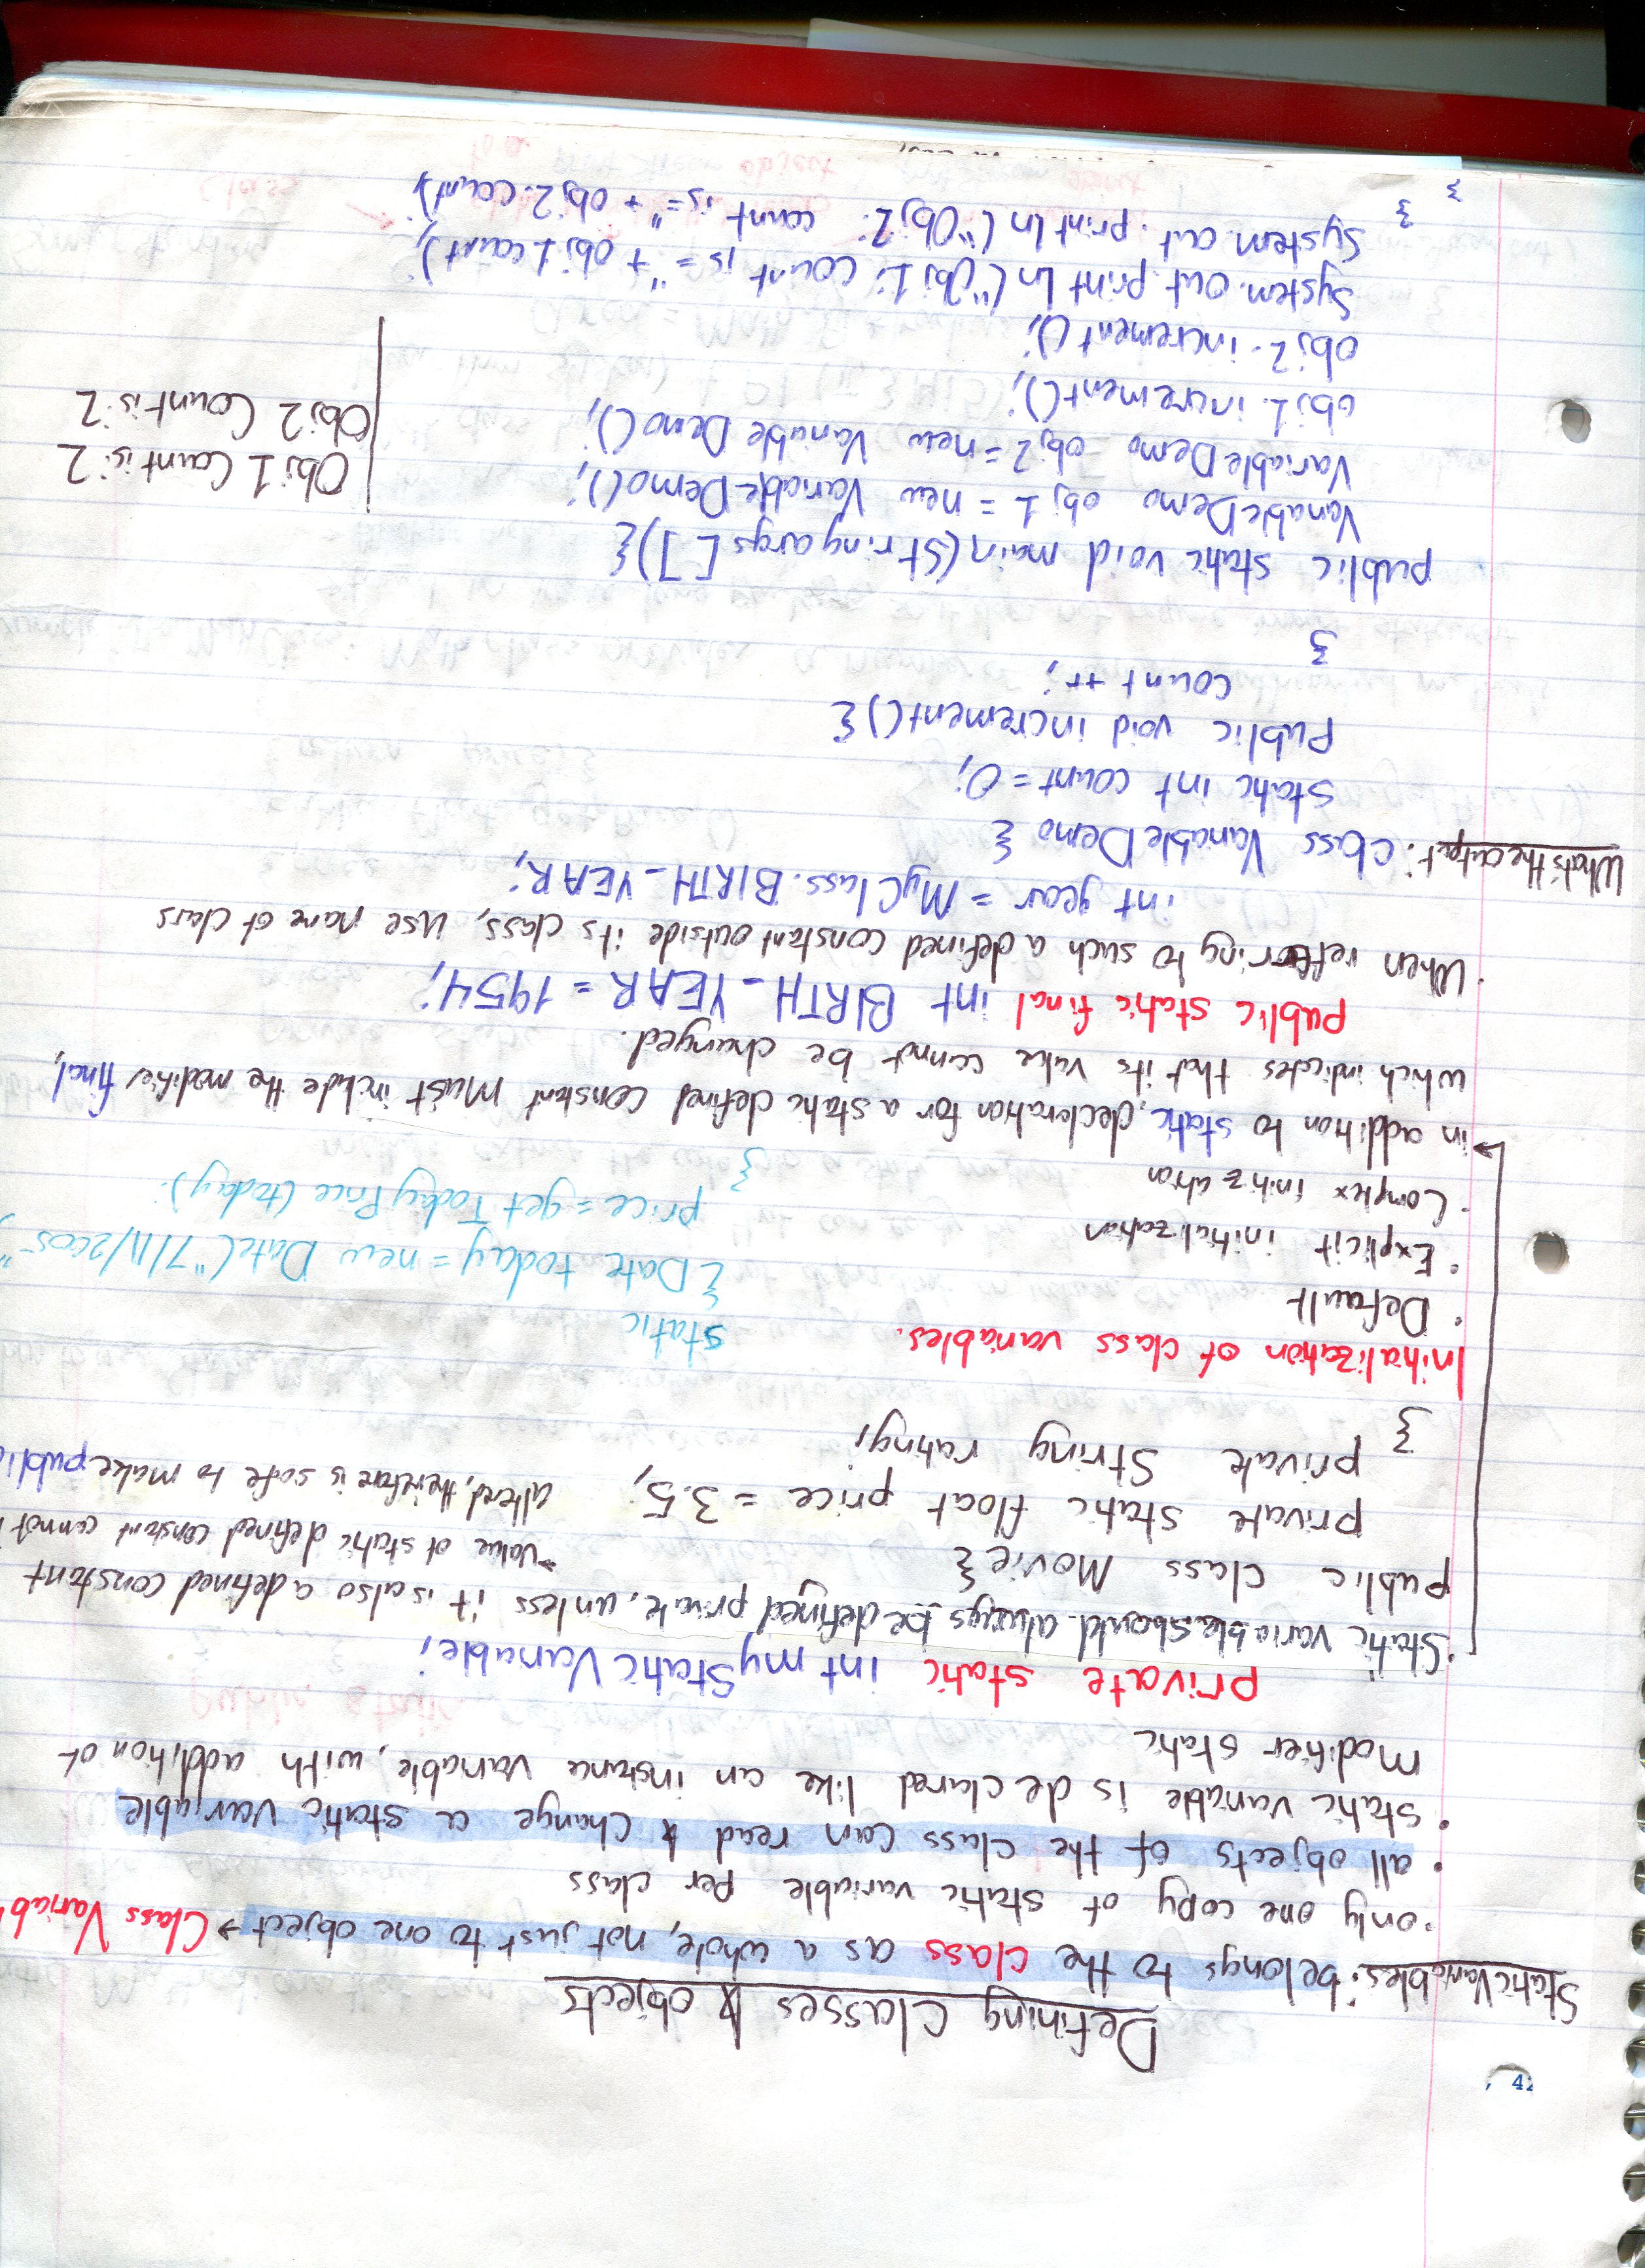 Defining Classes & objects
Static Variables: belongs to the class as a whole, not just to one object → Class Variab
• only one copy of static variable per class
• all objects of the class can read & change a static variable
• static variable is declared like an instance variable, with addition of
modifier static
private static int myStaticVariable;
• Static variable should always be defined private, unless it is also a defined constant
→ value of static defined constant cannot
altered, therefore is safe to make public
public class Movie {
private static float price = 3.5;
private String rating;
}
Initialization of class variables.
• Default
• Explicit initialization
• Complex initiization
static
{ Date today = new Date("7/11/2005"
price = getTodayPrice (today);
}
→ in addition to static, decleration for a static defined constant must include the modifier final,
which indicates that its value cannot be changed.
public static final int BIRTH_YEAR = 1954;
• When referring to such a defined constant outside its class, use name of class
int year = MyClass.BIRTH_YEAR;
What's the output: class VariableDemo {
static int count = 0;
Public void increment() {
count ++;
}
public static void main(String args[]) {
VariableDemo obj1 = new VariableDemo();
VariableDemo obj2 = new VariableDemo();
obj1.increment();
obj2.increment();
System.out.println("Obj1: count is=" + obj1.count);
System.out.println("Obj2: count is=" + obj2.count);
}
}
Obj1 Count is: 2
Obj2 Count is: 2